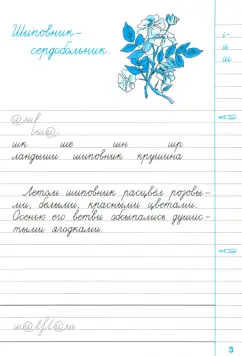 Шиповник –
сердобольник.
шк ше шн шр
ландыши шиповник крушина
Летом шиповник расцвёл розовы-
ми, белыми, красными цветами.
Осенью его ветви обсыпались душис-
тыми ягодками.
3